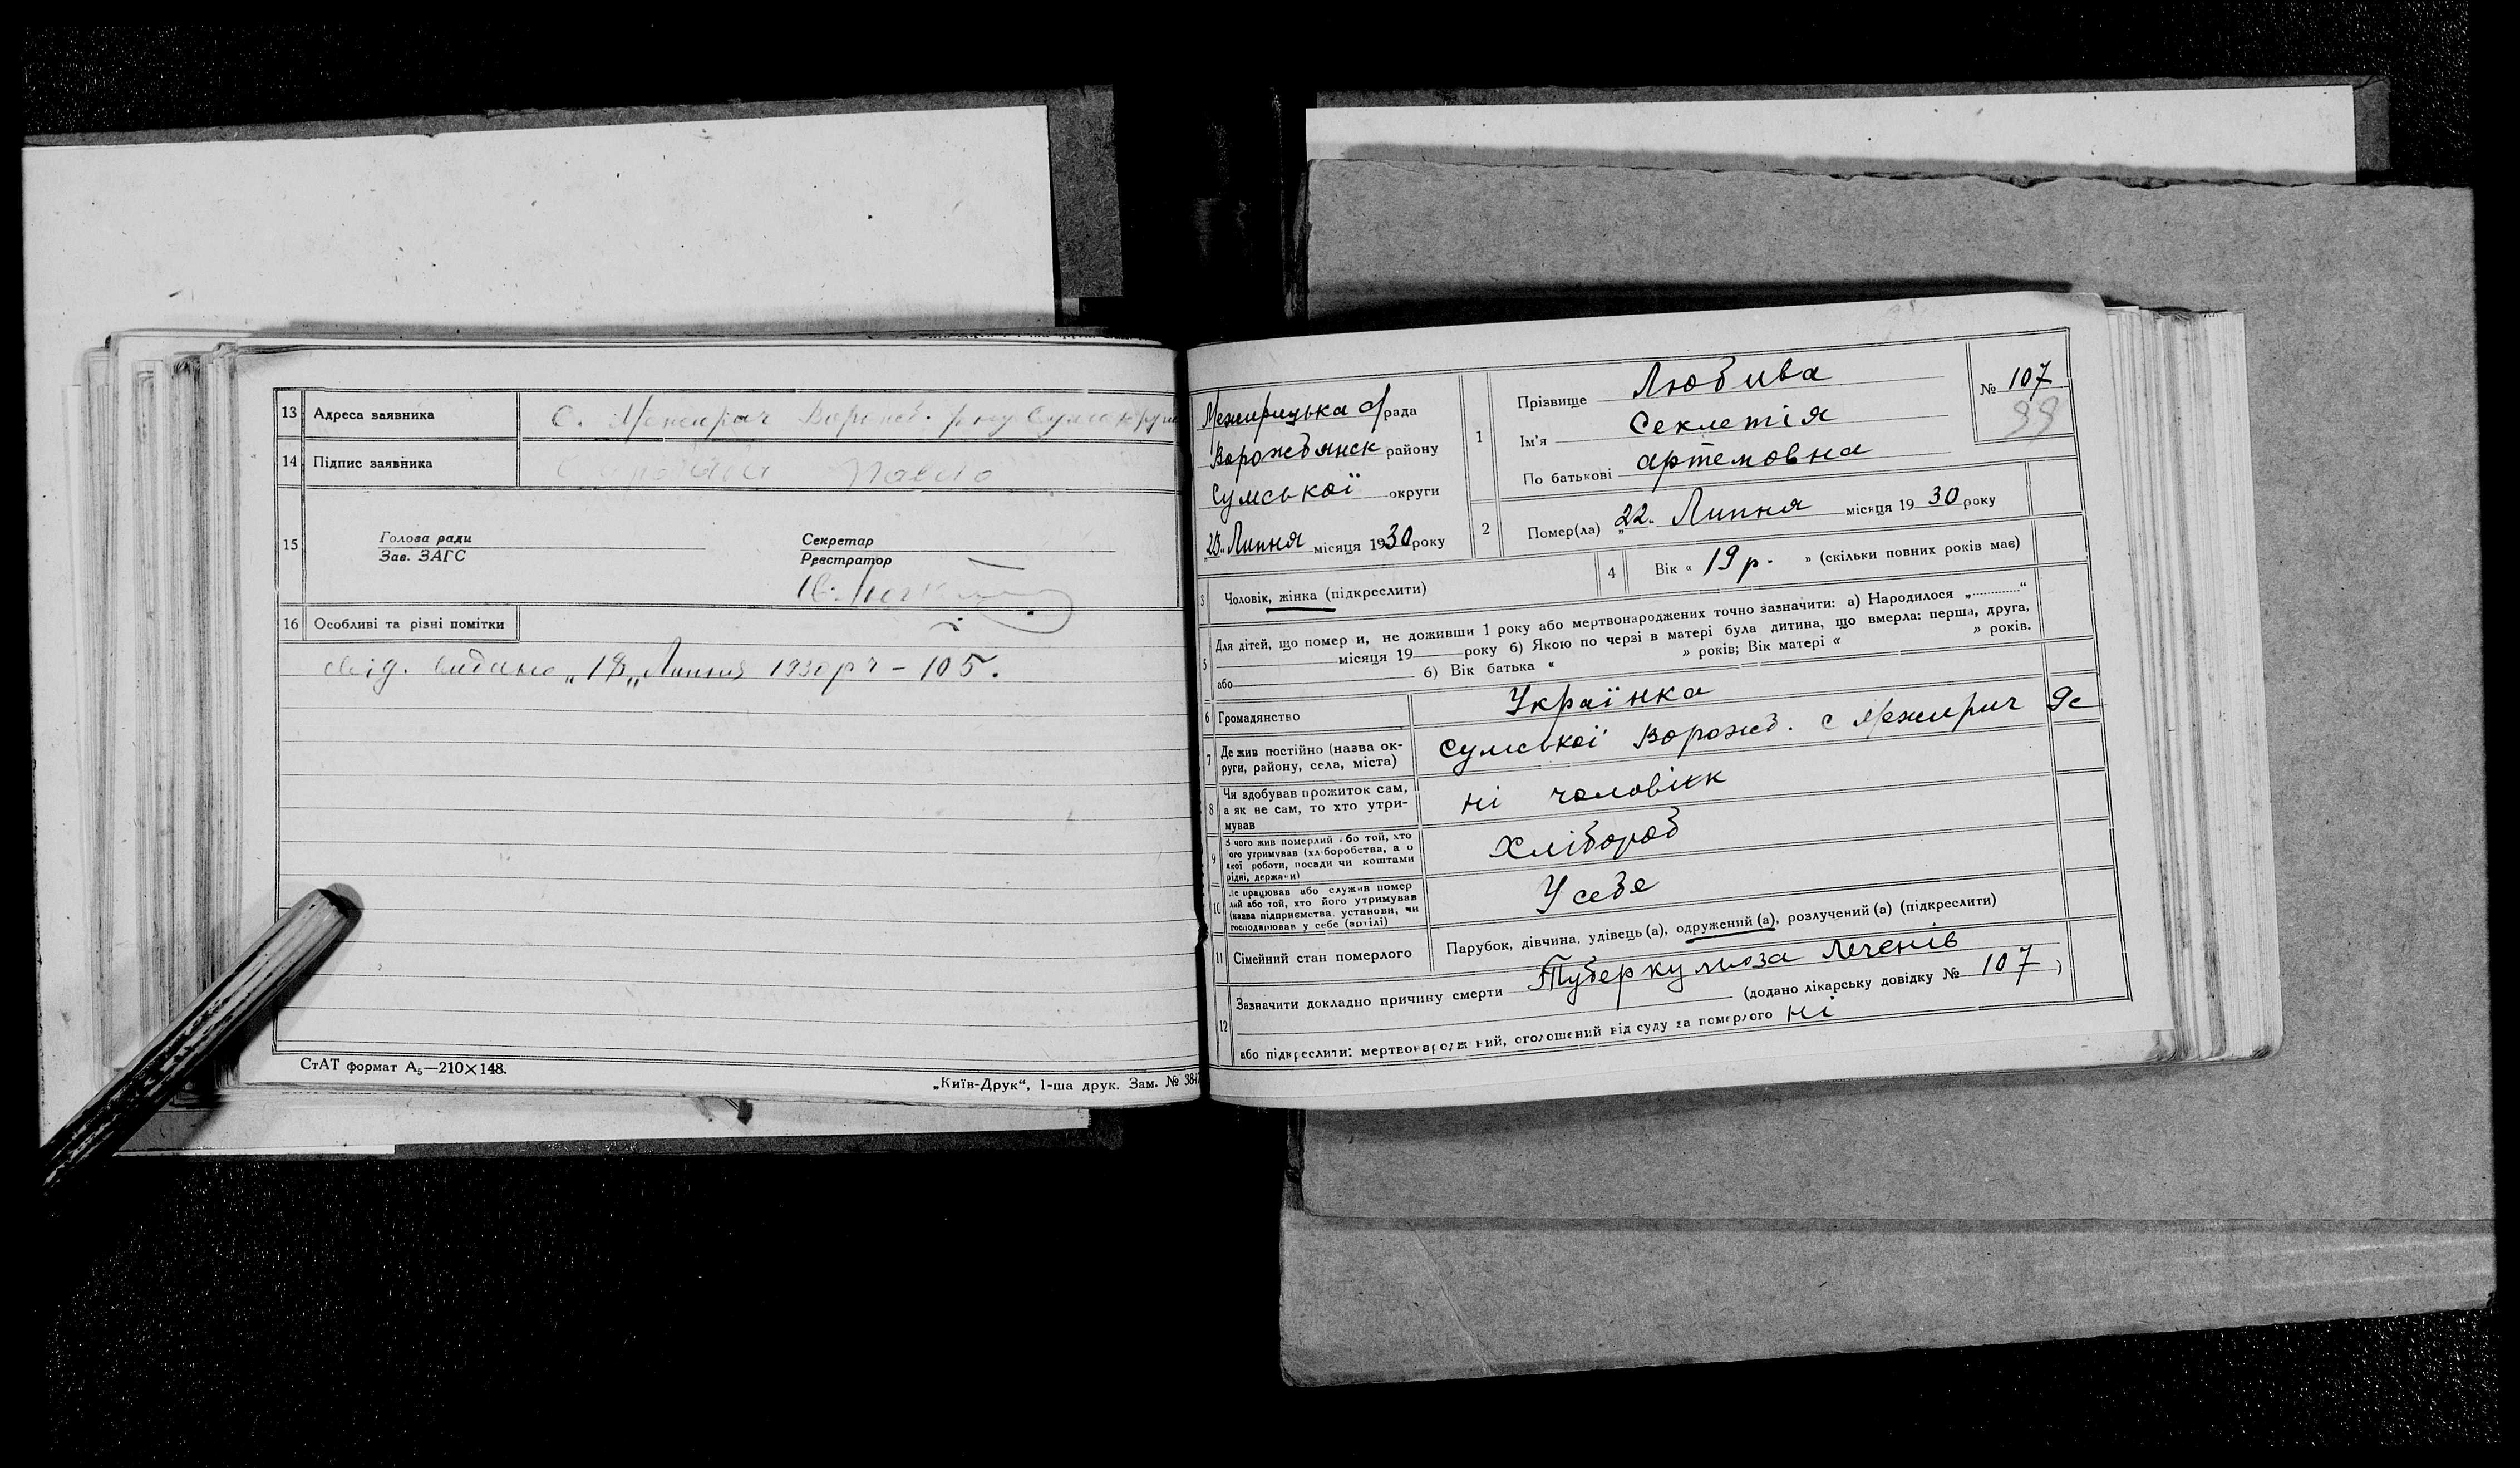 13 Адреса заявника С. Межирич Ворожб. р-ну Сумск округи
14 Підпис заявника Павло
15 Голова ради Секретар
Зав. ЗАГС Реєстратор
16 Особливі та різні помітки
свід. видано „18„ Липня 1930 р ч – 105.
СтАТ формат А₅—210×148.
„Київ-Друк“, 1-ша друк. Зам. № 38
Межирицька с/рада
Ворожбянск району
Сумської округи
„23„ Липня місяця 1930 року
1 Прізвище Любива
Ім'я Секлетія
По батькові Артемовна
№ 107
99
2 Помер(ла) „22„ Липня місяця 1930 року
3 Чоловік, жінка (підкреслити)
4 Вік « 19 р. » (скільки повних років має)
5 Для дітей, що померли, не доживши 1 року або мертвонароджених точно зазначити: а) Народилося „............“
місяця 19 року б) Якою по черзі в матері була дитина, що вмерла: перша, друга,
або б) Вік батька « » років; Вік матері « » років.
6 Громадянство Українка
7 Де жив постійно (назва ок-
руги, району, села, міста) Сумської Ворожб. с Межирич 9с
8 Чи здобував прожиток сам,
а як не сам, то хто утри-
мував ні чоловікк
9 З чого жив померлий або той, хто
його утримував (хліборобства, а о
якої роботи, посади чи коштами
рідні, держави) Хлібороб
10 Де працював або служив помер
лий або той, хто його утримував
(назва підприємства, установи, чи
господарював у себе (артілі) У себе
11 Сімейний стан померлого Парубок, дівчина, удівець (а), одружений (а), розлучений (а) (підкреслити)
12 Зазначити докладно причину смерти Туберкульоза Легенів
(додано лікарську довідку № 107)
або підкреслити: мертвонароджений, оголошений від суду за померлого ні